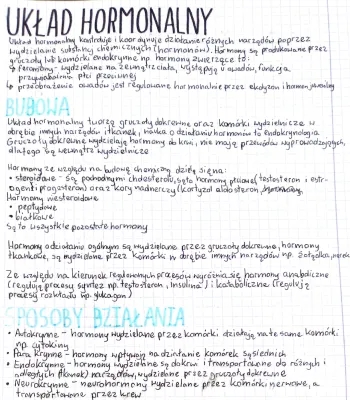 UKŁAD HORMONALNY
Układ hormonalny kontroluje i koordynuje działanie różnych narządów poprzez
wydzielanie substancji chemicznych (hormonów). Hormony są produkowane przez
gruczoły lub komórki endokrynne np hormony zwierzęce to:
feromony - wydzielane na zewnątrz ciała, występują u owadów, funkcja
przywabianie płci przeciwnej
przeobrażenie owadów jest regulowane hormonalnie przez ekdyzon i hormon juwenilny
BUDOWA
Układ hormonalny tworzą gruczoły dokrewne oraz komórki wydzielnicze w
obrębie innych narządów i tkanek, nauka o działaniu hormonów to endokrynologia
Gruczoły dokrewne wydzielają hormony do krwi, nie mają przewodów wyprowadzających,
dlatego są wewnątrz wydzielnicze
Hormony ze względu na budowę chemiczną dzielą się na:
• steroidowe - są pochodnymi cholesterolu, są to hormony płciowe( testosteron i estr-
ogeni progesteron) oraz kory nadnerczy (kortyzol aldosteron
Hormony niesteroidowe:
• peptydowe
• białkowe
Są to wszystkie pozostałe hormony
Hormony o działaniu ogólnym są wydzielane przez gruczoły dokrewne, hormony
tkankowe, są wydzielane przez komórki w obrębie innych narządów np. żołądka, nerek
Ze względu na kierunek regulowanych procesów wyróżnia się hormony anaboliczne
(regulują procesy syntez np. testosteron, insulina) i kataboliczne (regulują
procesy rozkładu np. glukagon)
SPOSOBY DZIAŁANIA
• Autokrynne - hormony wydzielane przez komórki działają na te same komórki
np. cytokiny
• Parakrynne - hormony wpływają na działanie komórek sąsiednich
• Endokrynne - hormony wydzielane są do krwi i transportowane do różnych i
odległych tkanek i narządów, wydzielane przez gruczoły dokrewne
• Neurokrynne - neurohormony wydzielane przez komórki nerwowe, a
transportowane przez krew